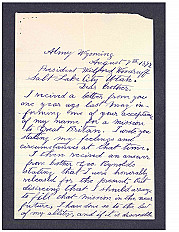 Almy Wyoming
August 7th 1893
President Wilford Woodruff
Salt Lake City Utah
Dear Brother
I received a letter from you
one year ago last May in-
forming me of your acceptance
of my name for a mission
to Great Britain. I wrote you
stating my feelings and
circumstances at that time,
I then received an answer
from Brother Geo Reynolds
stating that I was honorably
released for the present, but
desiring that I should arrange
to fill that mission in the near
future, I have done so to the best
of my ability, and if it is desirable